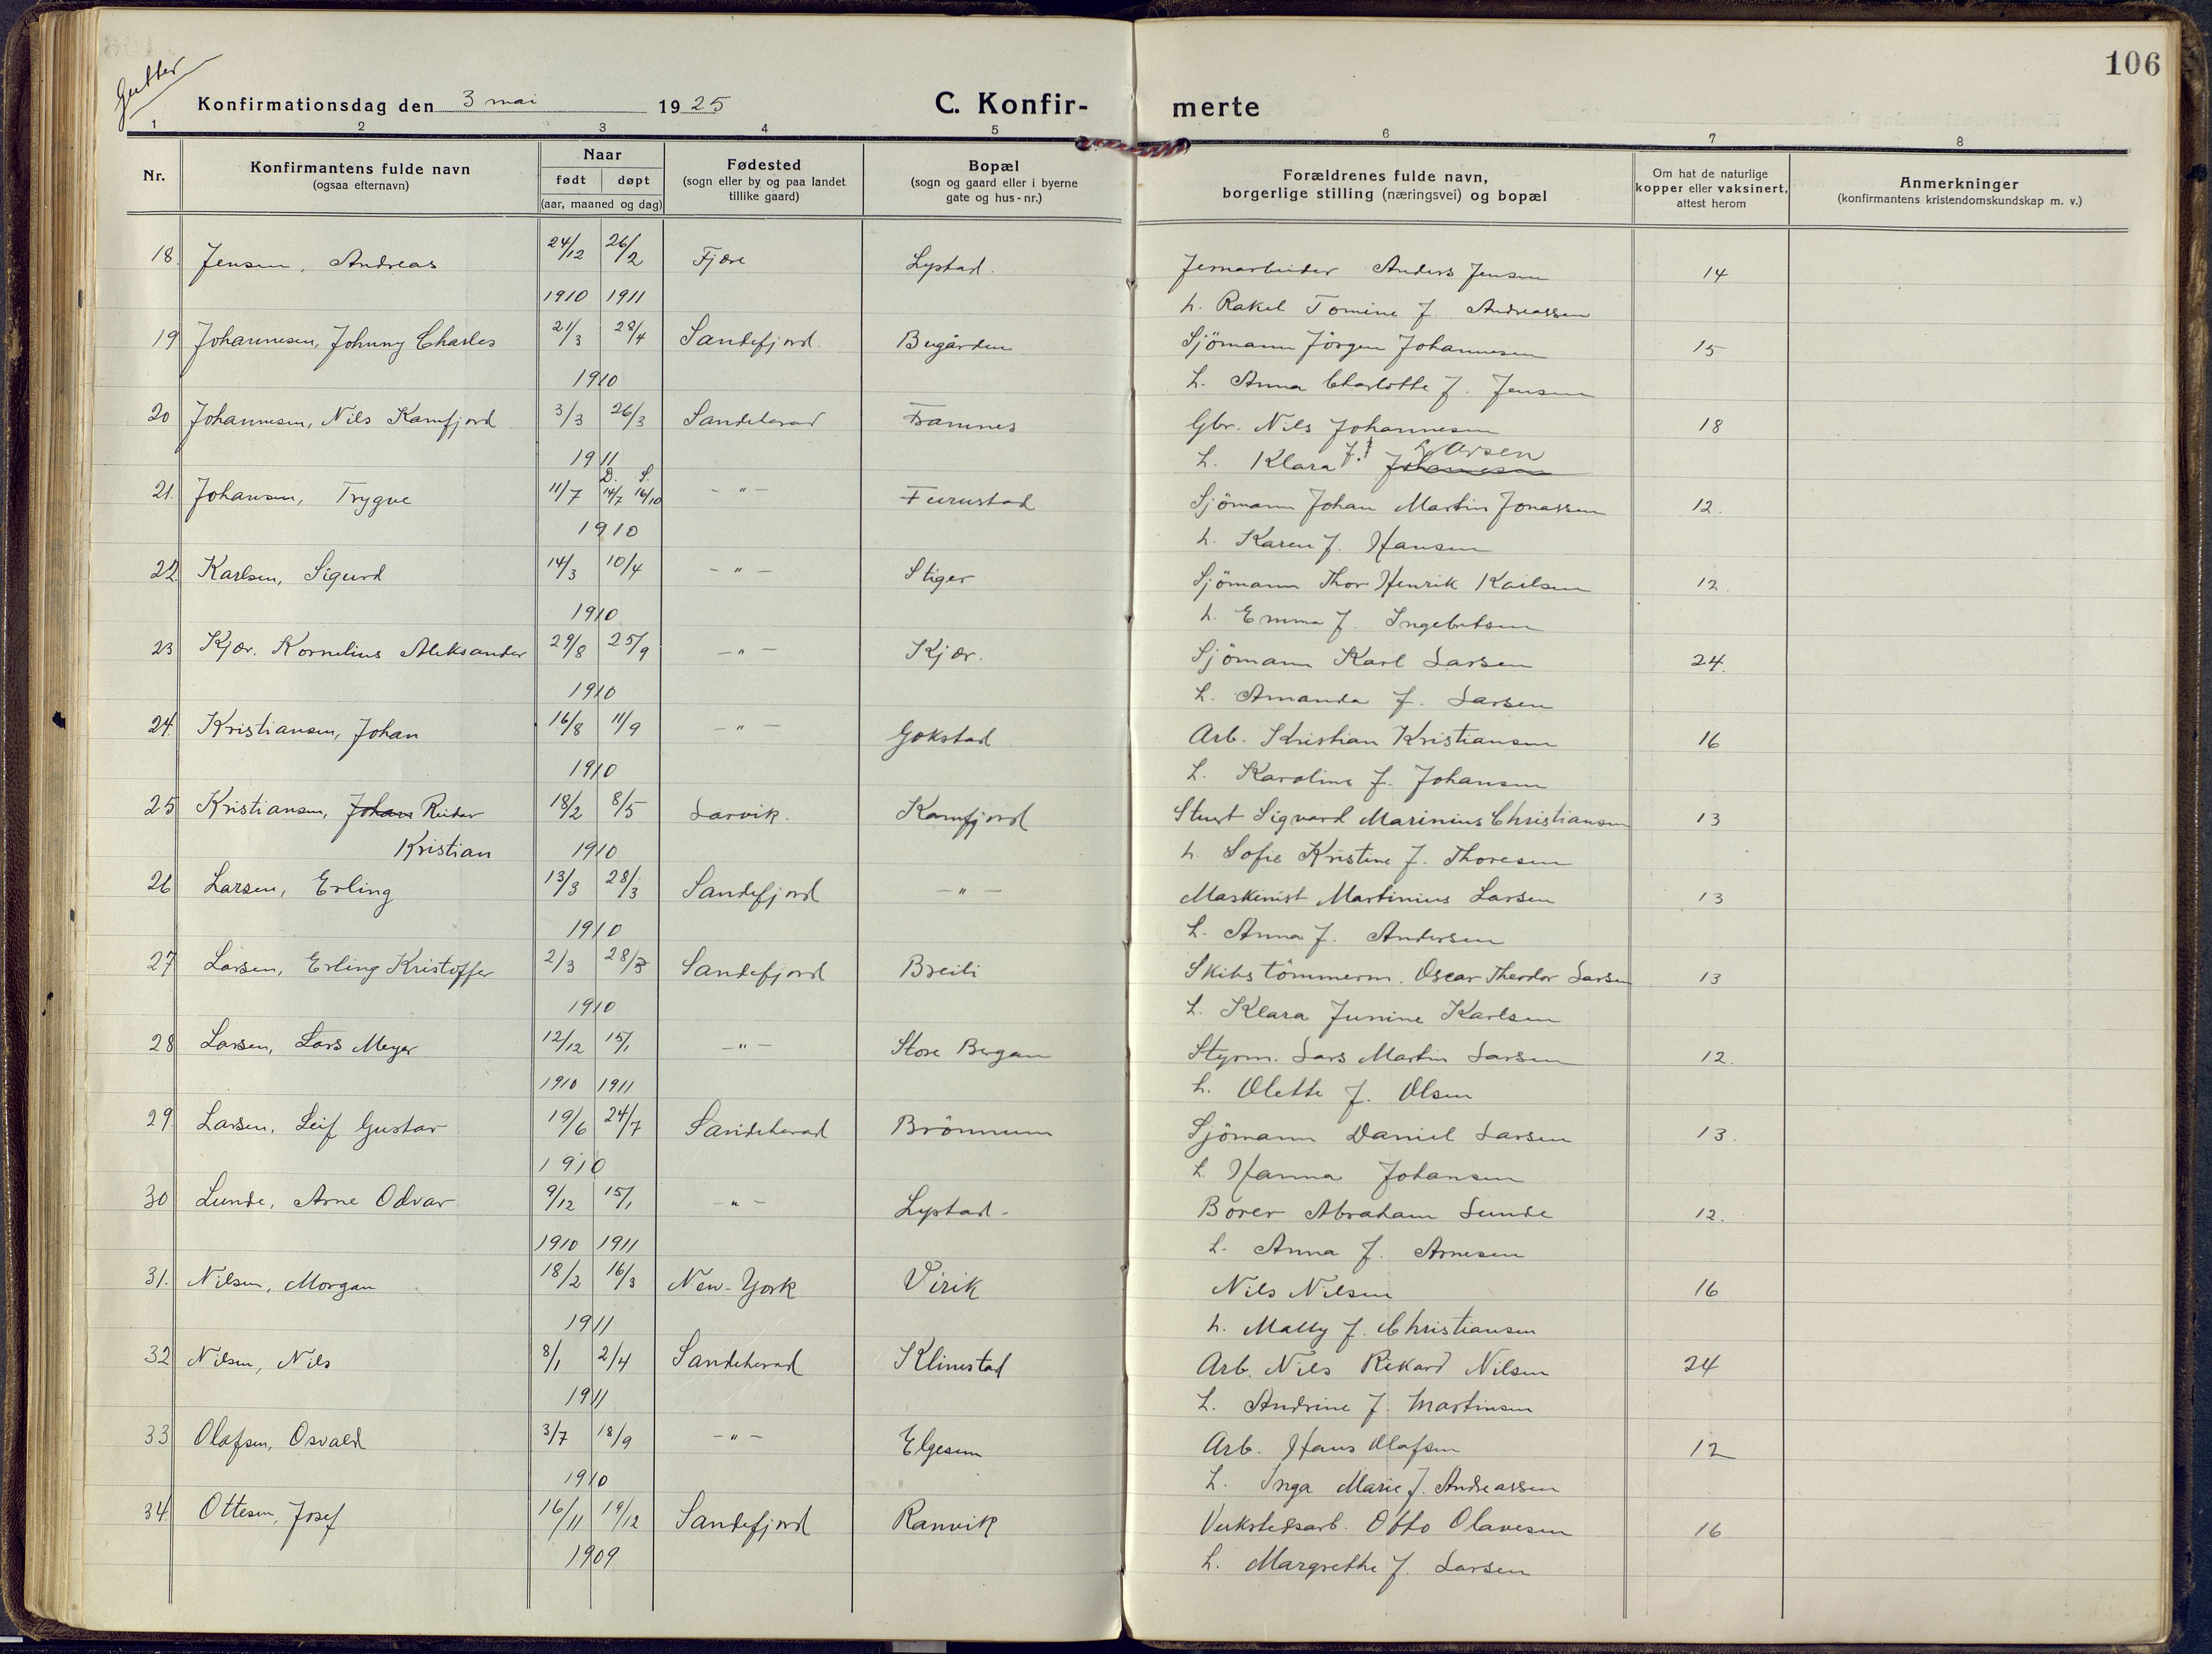 106
Gutter
Konfirmationsdag den 3 mai 1925 C. Konfir- merte
1 2 3 4 5 6 7 8
Nr.
Konfirmantens fulde navn
(ogsaa efternavn)
Naar
født døpt
(aar, maaned og dag)
Fødested
(sogn eller by og paa landet
tillike gaard)
Bopæl
(sogn og gaard eller i byerne
gate og hus-nr.)
Forældrenes fulde navn,
borgerlige stilling (næringsvei) og bopæl
Om hat de naturlige
kopper eller vaksinert,
attest herom
Anmerkninger
(konfirmantens kristendomskundskap m. v.)
18. Jensen, Andreas 24/12 26/2 Fjære Lystad. Jernarbeider Anders Jensen 14
1910 1911 h. Rakel Tomine f. Andreassen
19 Johannesen, Johnny Charles 21/3 28/4 Sandefjord. Bugården Sjömann Jörgen Johannesen 15
1910 h. Anna Charlotte f. Jensen
20 Johannesen, Nils Kamfjord 3/3 26/3 Sandeherad Framnes Gbr. Nils Johannesen 18
1911 h. Klara f. Johannesen Larsen
D. S.
21. Johansen, Trygve 11/7 14/7 16/10 -"- Furustad Sjömann Johan Martin Jonassen 12.
1910 h. Karen f. Hansen
22. Karlsen, Sigurd 14/3 10/4 -"- Stiger Sjömann Thor Henrik Karlsen 12.
1910 h. Emma f. Ingebretsen
23 Kjær. Kornelius Aleksander 29/8 25/9 -"- Kjær. Sjömann Karl Larsen 24.
1910 h. Amanda f. Larsen
24. Kristiansen, Johan 16/8 11/9 -"- Gokstad Arb. Kristian Kristiansen 16
1910 h. Karoline f. Johansen
25 Kristiansen, Johan Reidar 18/2 8/5 Larvik. Kamfjord Stuert Sigvard Marinius Christiansen 13
Kristian 1910 h. Sofie Kristine f. Thoresen
26 Larsen, Erling 13/3 28/3 Sandefjord -"- Maskinist Martinius Larsen 13
1910 h. Anna f. Andersen
27 Larsen, Erling Kristoffer 2/3 28/3 Sandefjord Breili Skibstömmerm. Oscar Theodor Larsen 13
1910 h. Klara Junine Karlsen
28 Larsen, Lars Meyer 12/12 15/1 -"- Store Bergan Styrm. Lars Martin Larsen 12.
1910 1911 h. Olette f. Olsen
29. Larsen, Leif Gustav 19/6 24/7 Sandeherad Brönnum Sjömann Daniel Larsen 13.
1910 h. Hanna Johansen
30 Lunde, Arne Odvar 9/12 15/1 -"- Lystad. Borer Abraham Lunde 12.
1910 1911 h. Anna f. Arnesen
31. Nilsen, Morgan 18/2 16/3 New-York Virik Nils Nilsen 16
1911 h. Mally f. Christiansen
32 Nilsen, Nils 8/1 2/4 Sandeherad Klinestad Arb. Nils Rikard Nilsen 24
1911 h. Andrine f. Martinsen
33 Olafsen, Osvald 3/7 18/9 -"- Elgesem Arb. Hans Olafsen 12
1910 h. Inga Marie f. Andreassen
34. Ottesen, Josef 16/11 19/12 Sandefjord Ranvik Verkstedsarb. Otto Olavesen 16
1909 h. Margrethe f. Larsen